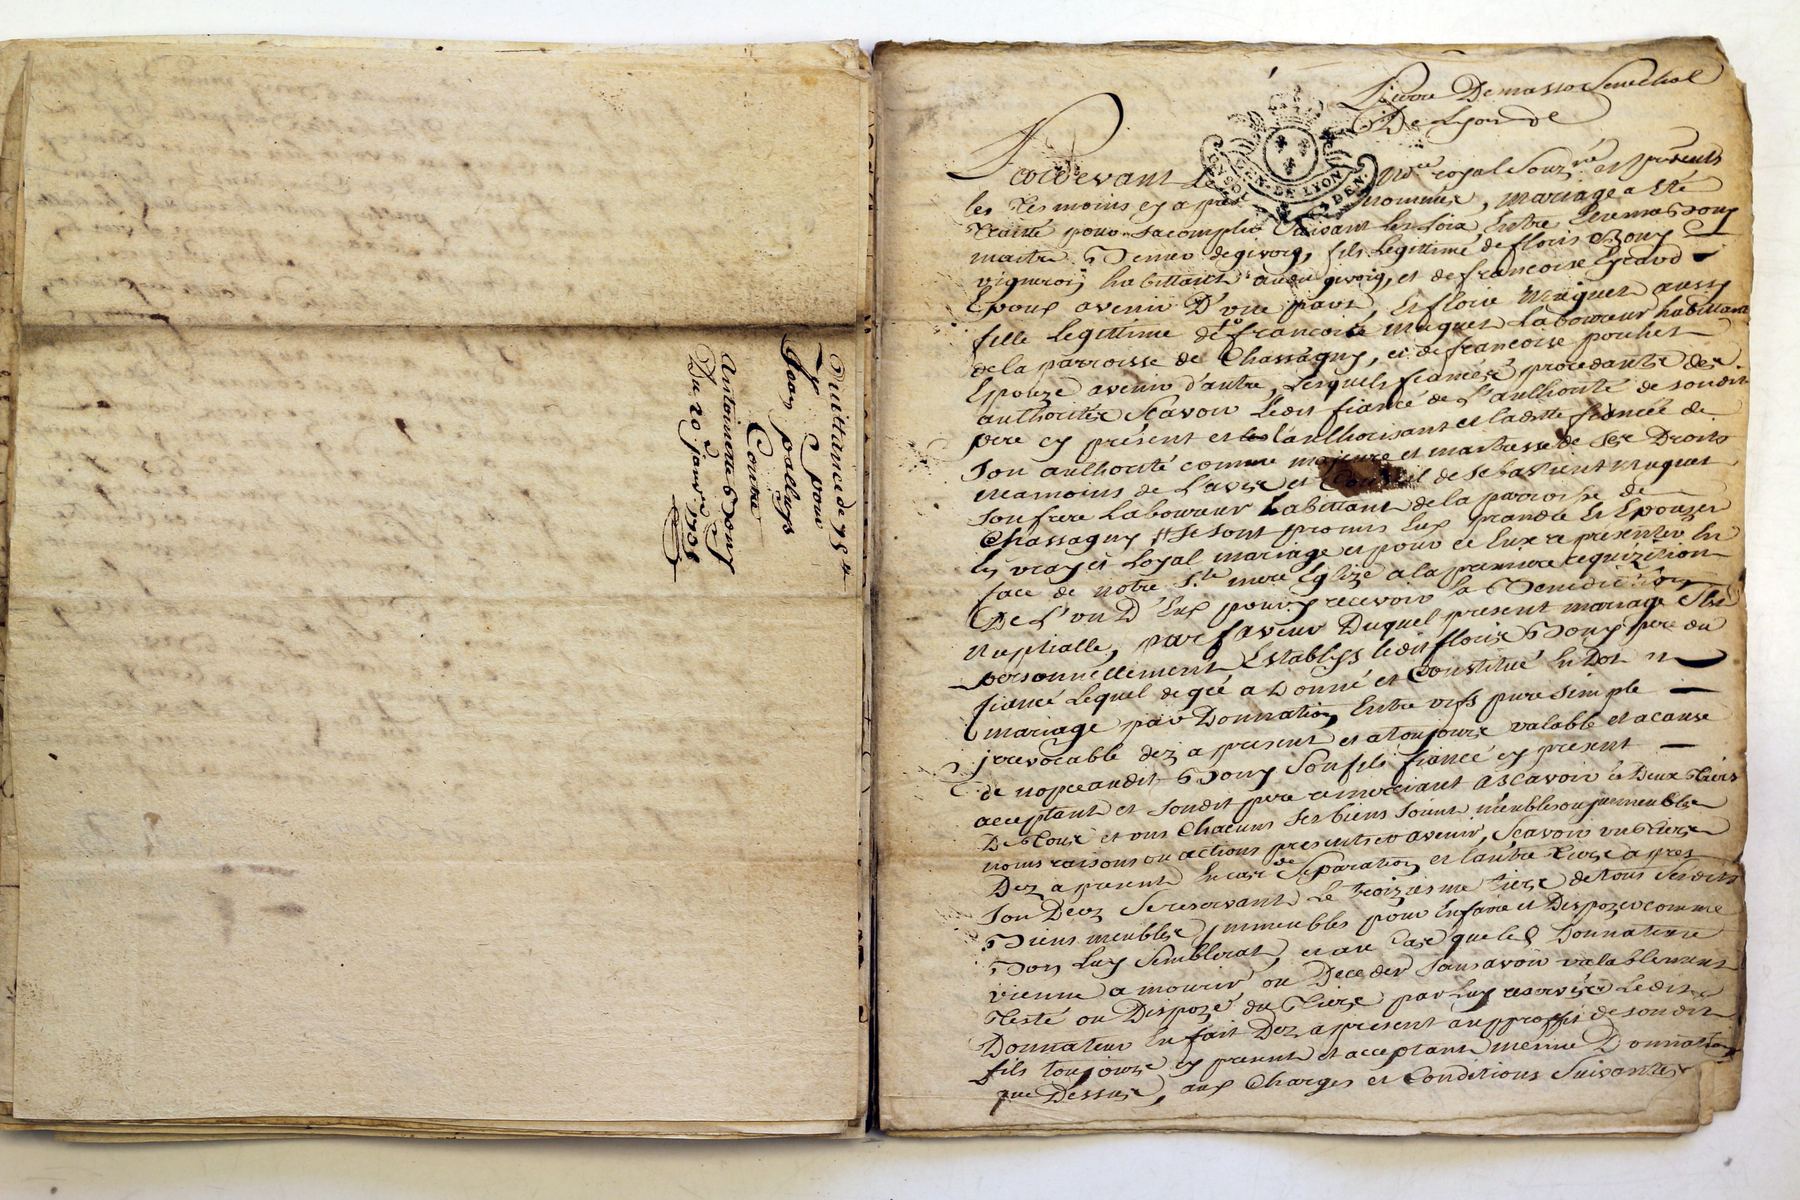 Quittance de 75 ᵗᵗ
pour
Jean
Contre
Antoinette Bony
Du 20 janv.ʳ 1735
Pierre De masso Senechal
De Lyon
GEN. DE LYON
Pardevant Le no.ʳᵉ royal Souz.ⁿᵉ et presents
les tesmoins cy apres nommés, mariage a Esté
traitté pour sacomplir Suivant les loix Entre Bony
maitre de givors, fils legittime de floris Bony
vigneron habittant audit givors, et de francoise
Epoux avenir D'une part, Et floric muguet aussy
fille legittime de francois muguet Laboureur habittant
de la parroisse de Chassagny, et de francoise pouchet
Epouze avenir d'autre, Lesquels fiances procedants des
authorités Scavoir Ledit fiancé de L'authorité de sondit
pere cy présent et l'authorisant et ladite fiancée de
son authorité comme majeure et maitresse de Ses Droits
neamoins de L'avis et Conseil de Sebastien muguet
son frere Laboureur habittant de la parroisse de
Chassagny Se sont promis Eux prandre Et Epouzer
En vray et Loyal mariage et pour ce Eux a presenter En
face de notre S.ᵗᵉ mere Eglize a la premiere requizition
De L'un D'Eux pour y recevoir la Benediction
Nuptialle, par faveur Duquel present mariage S'est
personnellement Establys ledit floris Bony pere du
fiancé Lequel de gré a Donné et Constitué En Dot
mariage par Donnation Entre vifs pure Simple
jrrevocable dez a present et a toujours valable et a cause
de nopce audit Bony Son fils fiancé cy present
acceptant et sondit pere remerciant ascavoir Deux tiers
De tous et uns Chacuns Ses biens Soient meubles ou jmmeubles
noms raisons ou actions presents et avenir, Scavoir un tiers
Dez a present En cas de Separation et l'autre tiers apres
son Deces Se reservant Le troiziesme tiers de tous Sesdits
Biens meubles jmmeubles pour En faire et Dispozer comme
Bon Luy Semblerat, et au Cas que le Donnateur
vienne a mourir ou Deceder sans avoir valablement
testé ou Dispozé du tiers par Luy reservé Ledit
Donnateur En fait Dez a present au proffit de sondit
fils toujours cy present et acceptant mesme Donnation
que Dessus, aux Charges et Conditions Suivantes